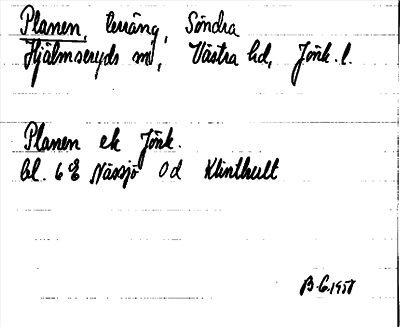 Planen, terräng, Söndra
Hjälmseryds sn, Västra hd, Jönk. l.
Planen ek Jönk.
bl. 6 E Nässjö 0 d Klinthult
B. G. 1958